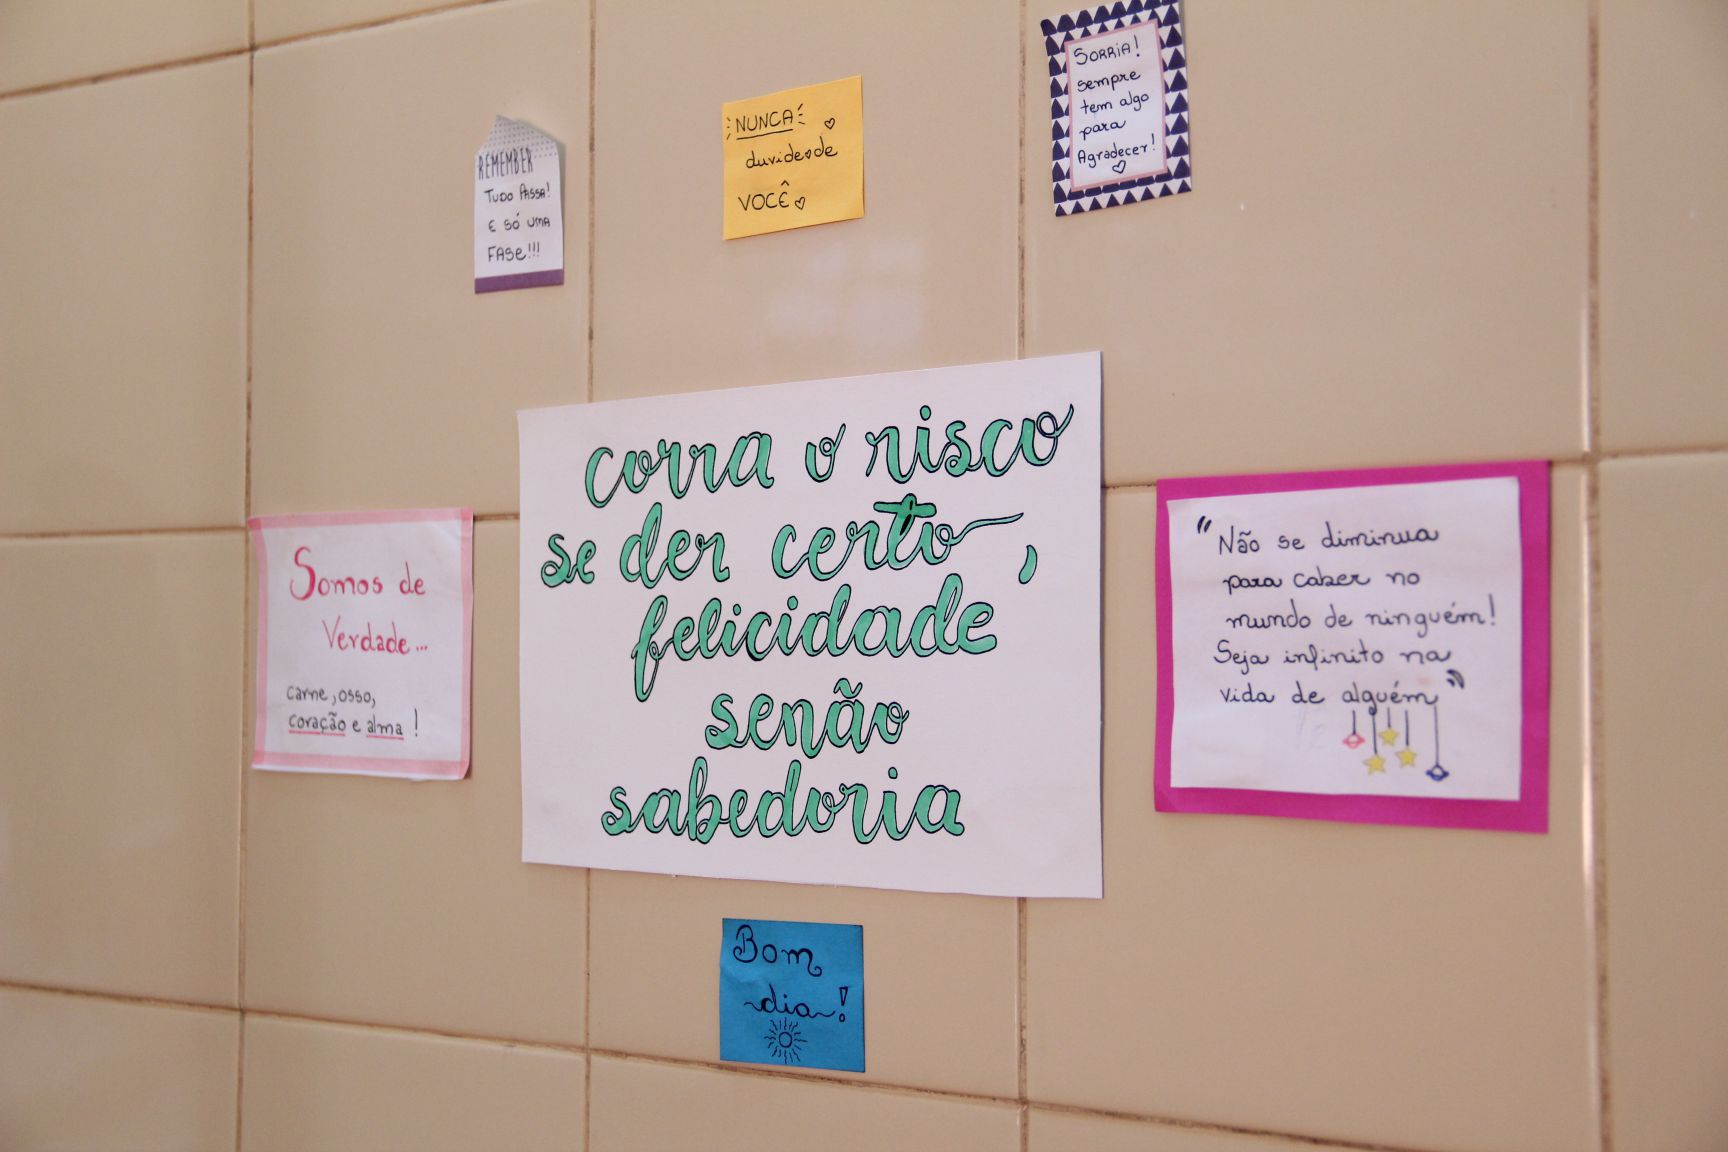 REMEMBER
TUDO PASSA!
E SÓ UMA
FASE!!!
NUNCA
duvide de
VOCÊ
SORRIA!
sempre
tem algo
para
Agradecer!
corra o risco
se der certo,
felicidade
senão
sabedoria
Somos de
Verdade...
carne, osso,
coração e alma!
"Não se diminua
para caber no
mundo de ninguém!
Seja infinito na
vida de alguém"
Bom
dia!